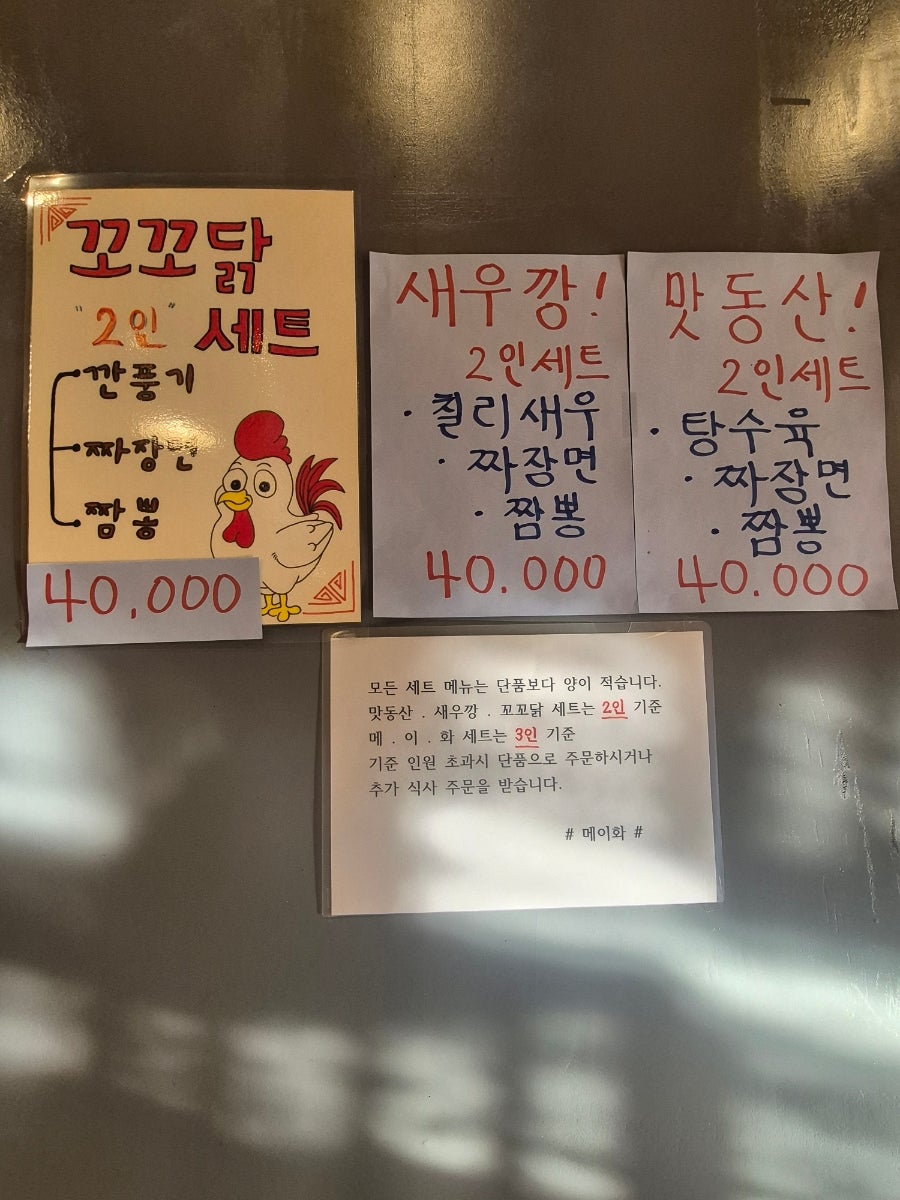 꼬꼬닭
"2인" 세트
깐풍기
짜장면
짬뽕
40,000
새우깡!
2인세트
· 칠리새우
· 짜장면
· 짬뽕
40.000
맛동산!
2인세트
· 탕수육
· 짜장면
· 짬뽕
40.000
모든 세트 메뉴는 단품보다 양이 적습니다.
맛동산 . 새우깡 . 꼬꼬닭 세트는 2인 기준
메 . 이 . 화 세트는 3인 기준
기준 인원 초과시 단품으로 주문하시거나
추가 식사 주문을 받습니다.
# 메이화 #